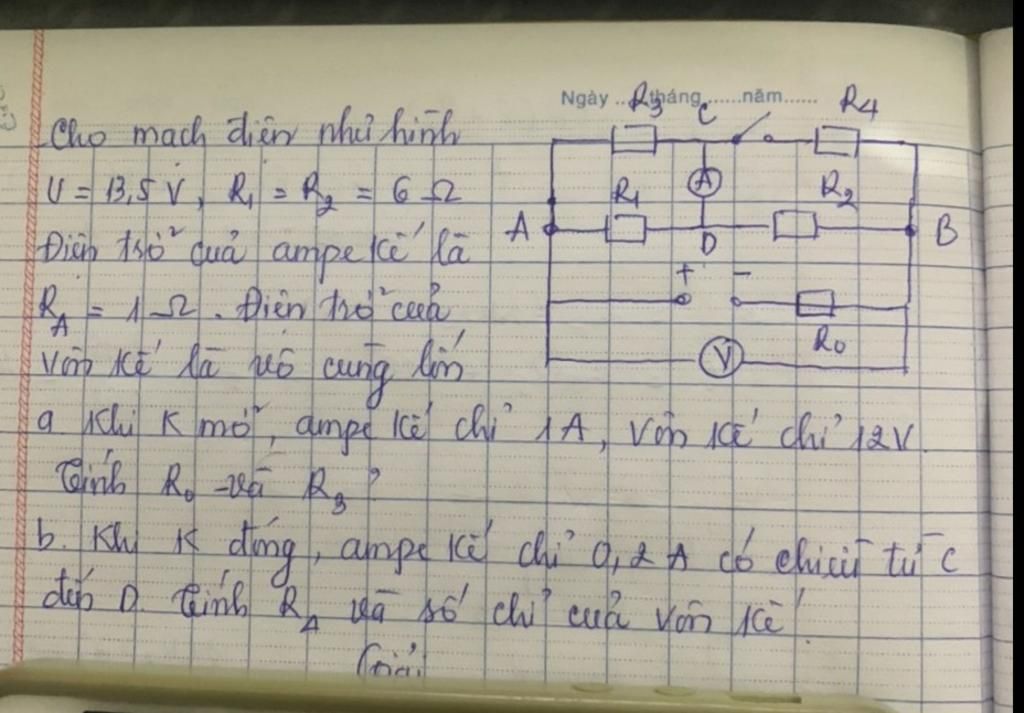 Ngày ...... tháng ...... năm ......
Cho mạch điện như hình
U = 13,5 V, R1 = R2 = 6 Ω
Điện trở của ampe kế là
RA = 1 Ω. Điện trở của
vôn kế là vô cùng lớn
a Khi K mở, ampe kế chỉ 1A, vôn kế chỉ 12V.
Tính R0 và R3?
b. Khi K đóng, ampe kế chỉ 0,2 A có chiều từ C
đến D. Tính R4 và số chỉ của vôn kế
Giải
R3 C R4
A R1 A R2 B
D
+ -
R0
V